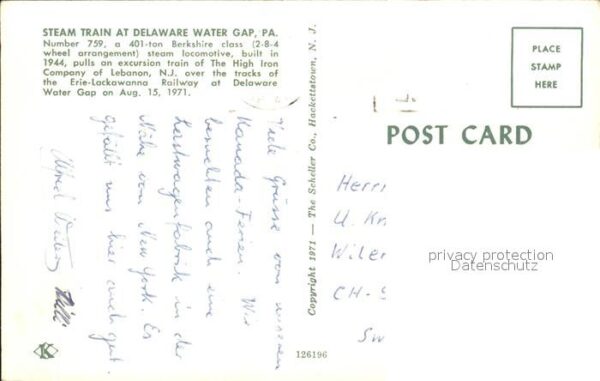 STEAM TRAIN AT DELAWARE WATER GAP, PA.
Number 759, a 401-ton Berkshire class (2-8-4
wheel arrangement) steam locomotive, built in
1944, pulls an excursion train of The High Iron
Company of Lebanon, N.J. over the tracks of
the Erie-Lackawanna Railway at Delaware
Water Gap on Aug. 15, 1971.
Viele Grüsse von unseren
Kanada-Ferien. Wir
besuchten auch eine
Lastwagenfabrik in der
Nähe von New York. Es
gefällt uns hier auch gut.
Alfred
Willi
K
Copyright 1971 — The Scheller Co., Hackettstown, N. J.
126196
PLACE
STAMP
HERE
POST CARD
Herrn
U. Kn
Wiler
CH-
Sw
privacy protection
Datenschutz